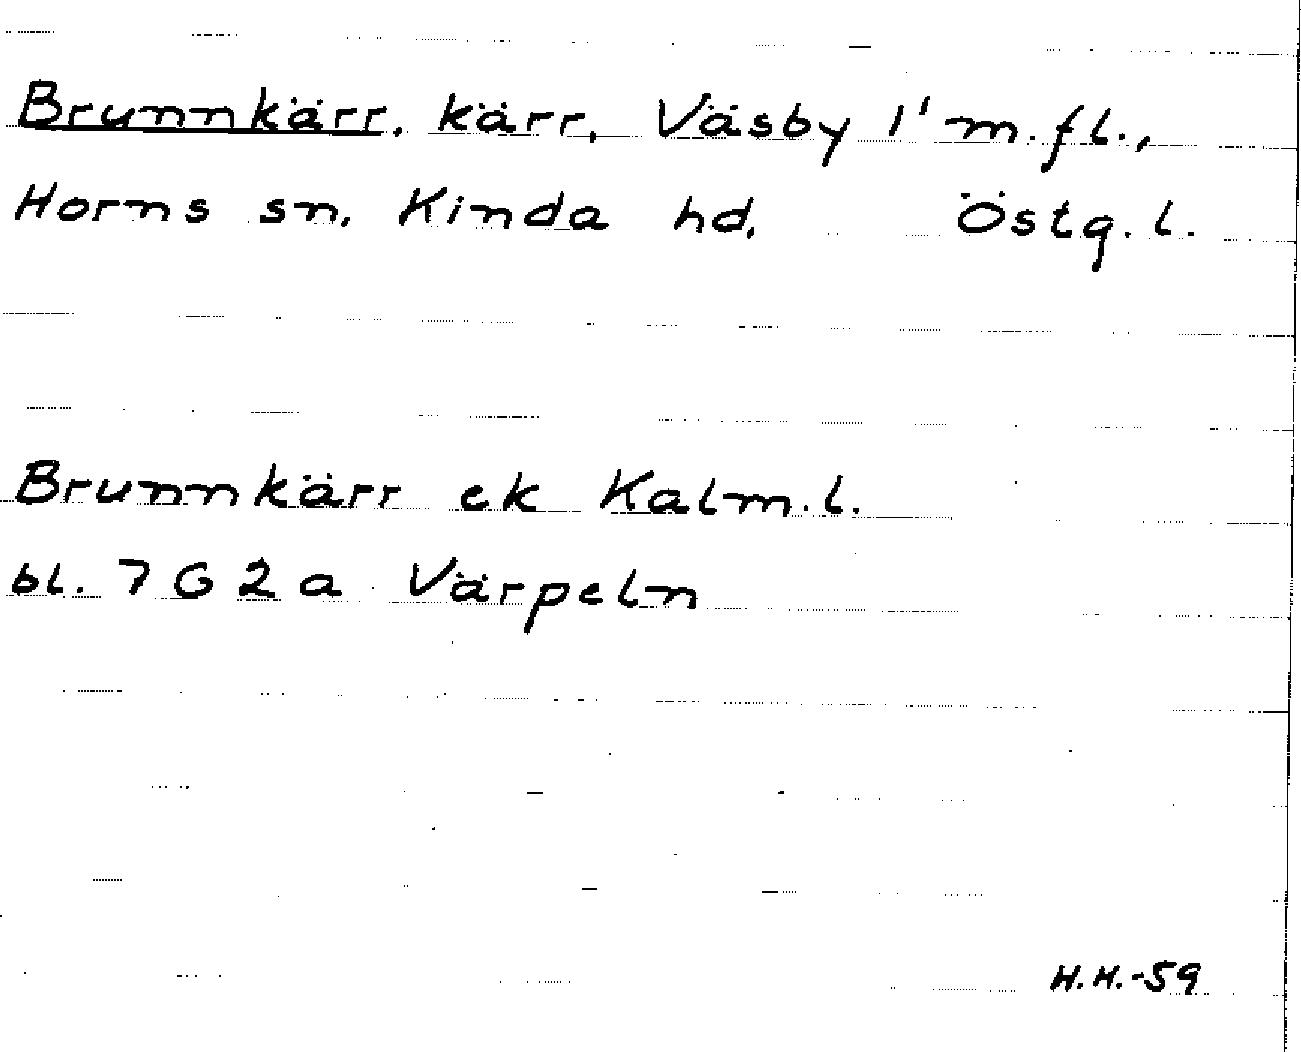 Brunnkärr, kärr, Väsby 1' m.fl.,
Horns sn. Kinda hd. Östg. l.
Brunnkärr ek Kalm.l.
bl. 7 G 2 a Värpeln
H.H.-59